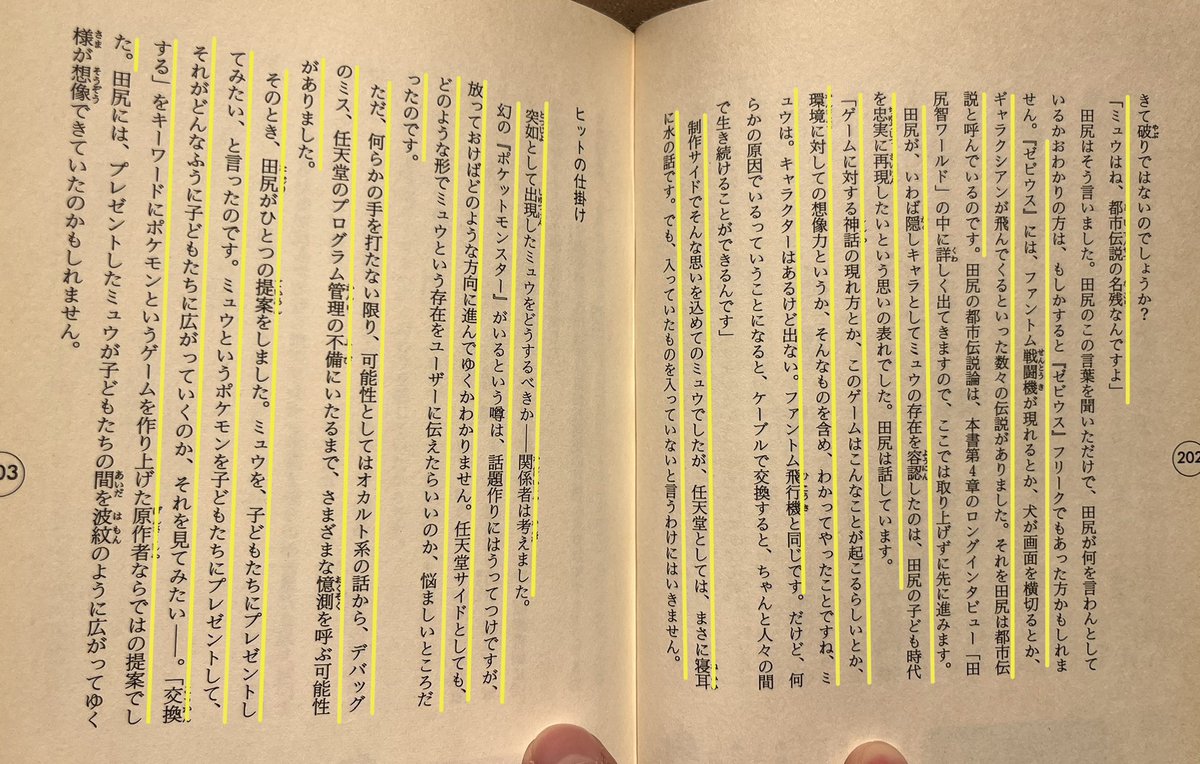 202
きて破りではないのでしょうか?
「ミュウはね、都市伝説の名残なんですよ」
田尻はそう言いました。田尻のこの言葉を聞いただけで、田尻が何を言わんとして
いるかおわかりの方は、もしかすると『ゼビウス』フリークでもあった方かもしれま
せん。『ゼビウス』には、ファントム戦闘機が現れるとか、犬が画面を横切るとか、
ギャラクシアンが飛んでくるといった数々の伝説がありました。それを田尻は都市伝
説と呼んでいるのです。田尻の都市伝説論は、本書第4章のロングインタビュー「田
尻智ワールド」の中に詳しく出てきますので、ここでは取り上げずに先に進みます。
田尻が、いわば隠しキャラとしてミュウの存在を容認したのは、田尻の子ども時代
を忠実に再現したいという思いの表れでした。田尻は話しています。
「ゲームに対する神話の現れ方とか、このゲームはこんなことが起こるらしいとか、
環境に対しての想像力というか、そんなものを含め、わかってやったことですね、ミ
ュウは。キャラクターはあるけど出ない。ファントム飛行機と同じです。だけど、何
らかの原因でいるっていうことになると、ケーブルで交換すると、ちゃんと人々の間
で生き続けることができるんです」
制作サイドでそんな思いを込めてのミュウでしたが、任天堂としては、まさに寝耳
に水の話です。でも、入っていたものを入っていないと言うわけにはいきません。
ヒットの仕掛け
突如として出現したミュウをどうするべきか――関係者は考えました。
幻の『ポケットモンスター』がいるという噂は、話題作りにはうってつけですが、
放っておけばどのような方向に進んでゆくかわかりません。任天堂サイドとしても、
どのような形でミュウという存在をユーザーに伝えたらいいのか、悩ましいところだ
ったのです。
ただ、何らかの手を打たない限り、可能性としてはオカルト系の話から、デバッグ
のミス、任天堂のプログラム管理の不備にいたるまで、さまざまな憶測を呼ぶ可能性
がありました。
そのとき、田尻がひとつの提案をしました。ミュウを、子どもたちにプレゼントし
てみたい、と言ったのです。ミュウというポケモンを子どもたちにプレゼントして、
それがどんなふうに子どもたちに広がっていくのか、それを見てみたい――。「交換
する」をキーワードにポケモンというゲームを作り上げた原作者ならではの提案でし
た。田尻には、プレゼントしたミュウが子どもたちの間を波紋のように広がってゆく
様が想像できていたのかもしれません。
03